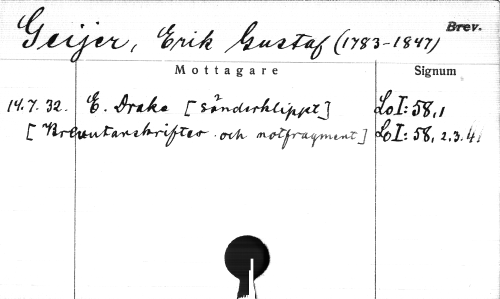 Geijer, Erik Gustaf (1783-1847) Brev.
Mottagare Signum
14.7.32. E. Drake [sönderklippt] LoI:58,1
[Brevutanskrifter och notfragment] LoI:58,2.3.4.